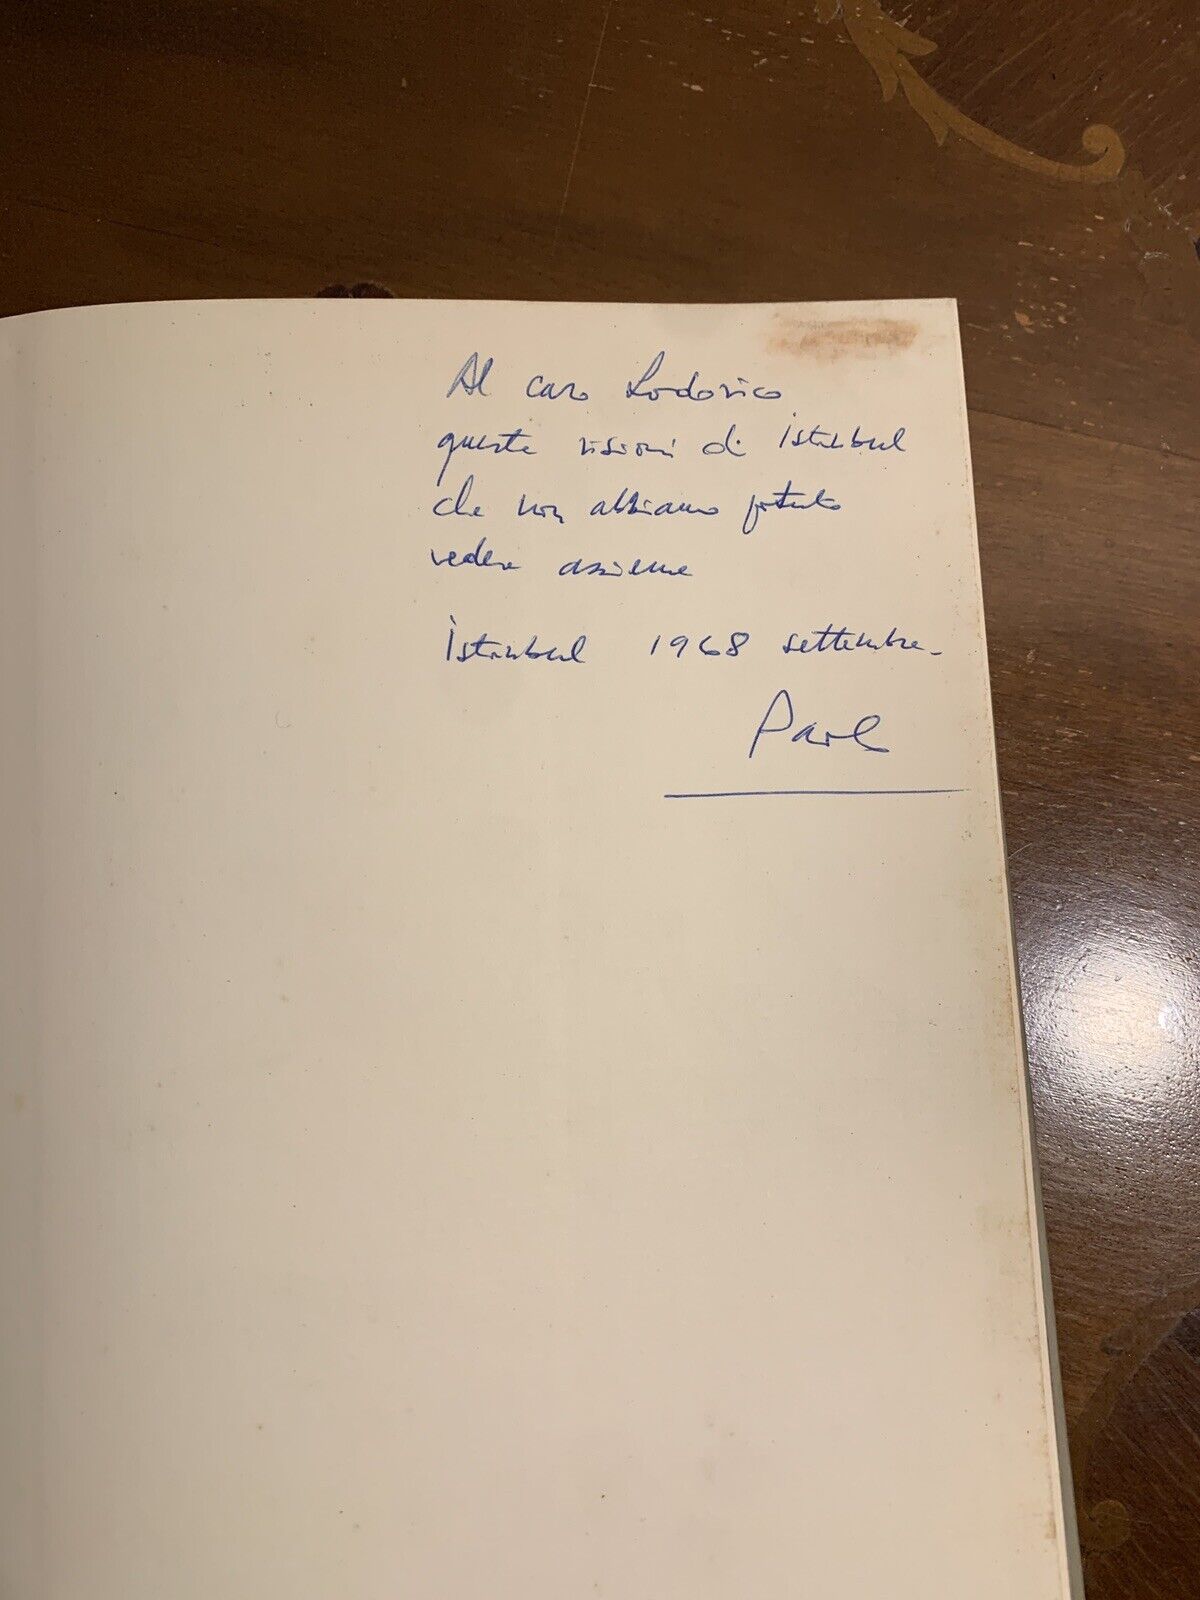 Al caro Lodovico
queste visioni di İstanbul
che non abbiamo potuto
vedere assieme
İstanbul 1968 settembre.
Paolo